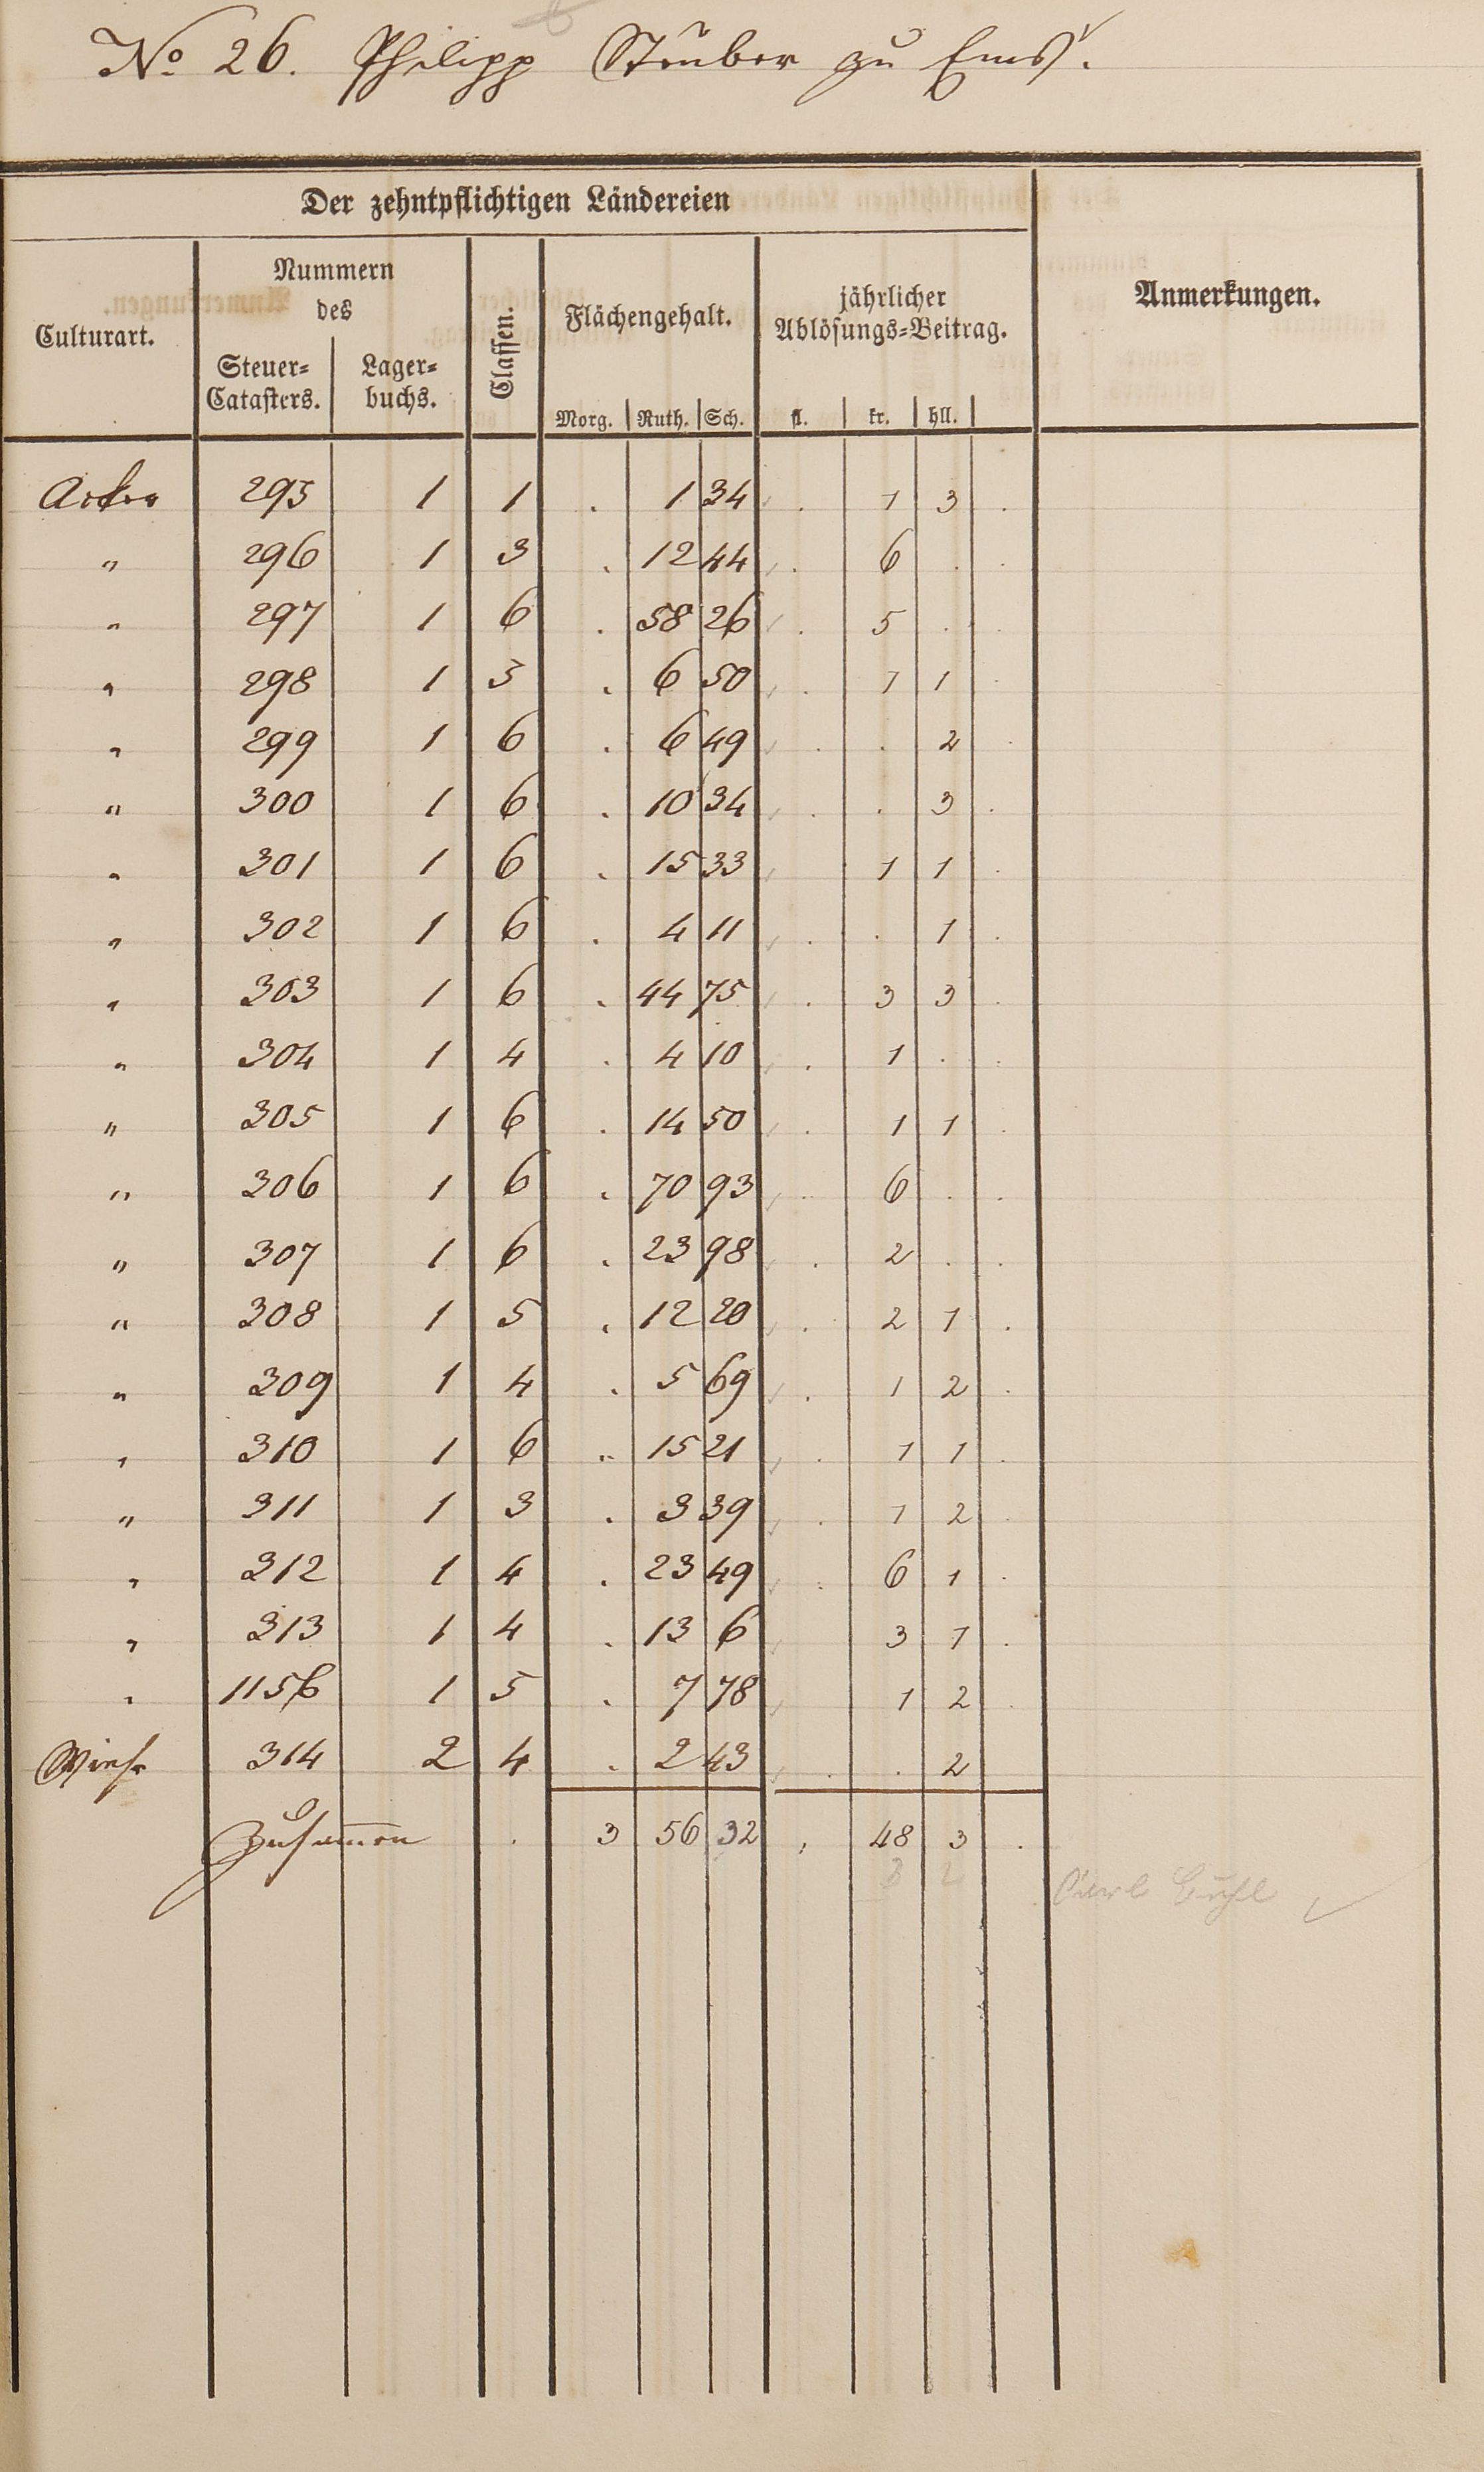 No 26. Philipp Stuber zu Ems.
Der zehntpflichtigen Ländereien
Culturart. Nummern des Steuer=Catasters. Lager=buchs. Classen. Flächengehalt. Morg. Ruth. Sch. jährlicher Ablösungs=Beitrag. fl. kr. hll. Anmerkungen.
Acker 295 1 1 . 1 34 . 1 3 .
" 296 1 3 . 12 44 . 6 . .
" 297 1 6 . 58 26 . 5 . .
" 298 1 5 . 6 50 . 1 1 .
" 299 1 6 . 6 49 . . 2 .
" 300 1 6 . 10 34 . . 3 .
" 301 1 6 . 15 33 1 1 .
" 302 1 6 . 4 11 . . 1 .
" 303 1 6 . 44 75 . 3 3 .
" 304 1 4 . 4 10 . 1 . .
" 305 1 6 . 14 50 . 1 1 .
" 306 1 6 . 70 93 . 6 . .
" 307 1 6 . 23 98 . 2 . .
" 308 1 5 . 12 20 . 2 1 .
" 309 1 4 . 5 69 . 1 2 .
" 310 1 6 . 15 21 . 1 1 .
" 311 1 3 . 3 39 . 1 2 .
" 312 1 4 . 23 49 . 6 1 .
" 313 1 4 . 13 6 3 1 .
" 1156 1 5 . 7 78 1 2 .
Wiese 314 2 4 . 2 43 . . 2
Zusammen . 3 56 32 . 48 3 .
3 2 Carl Buhl